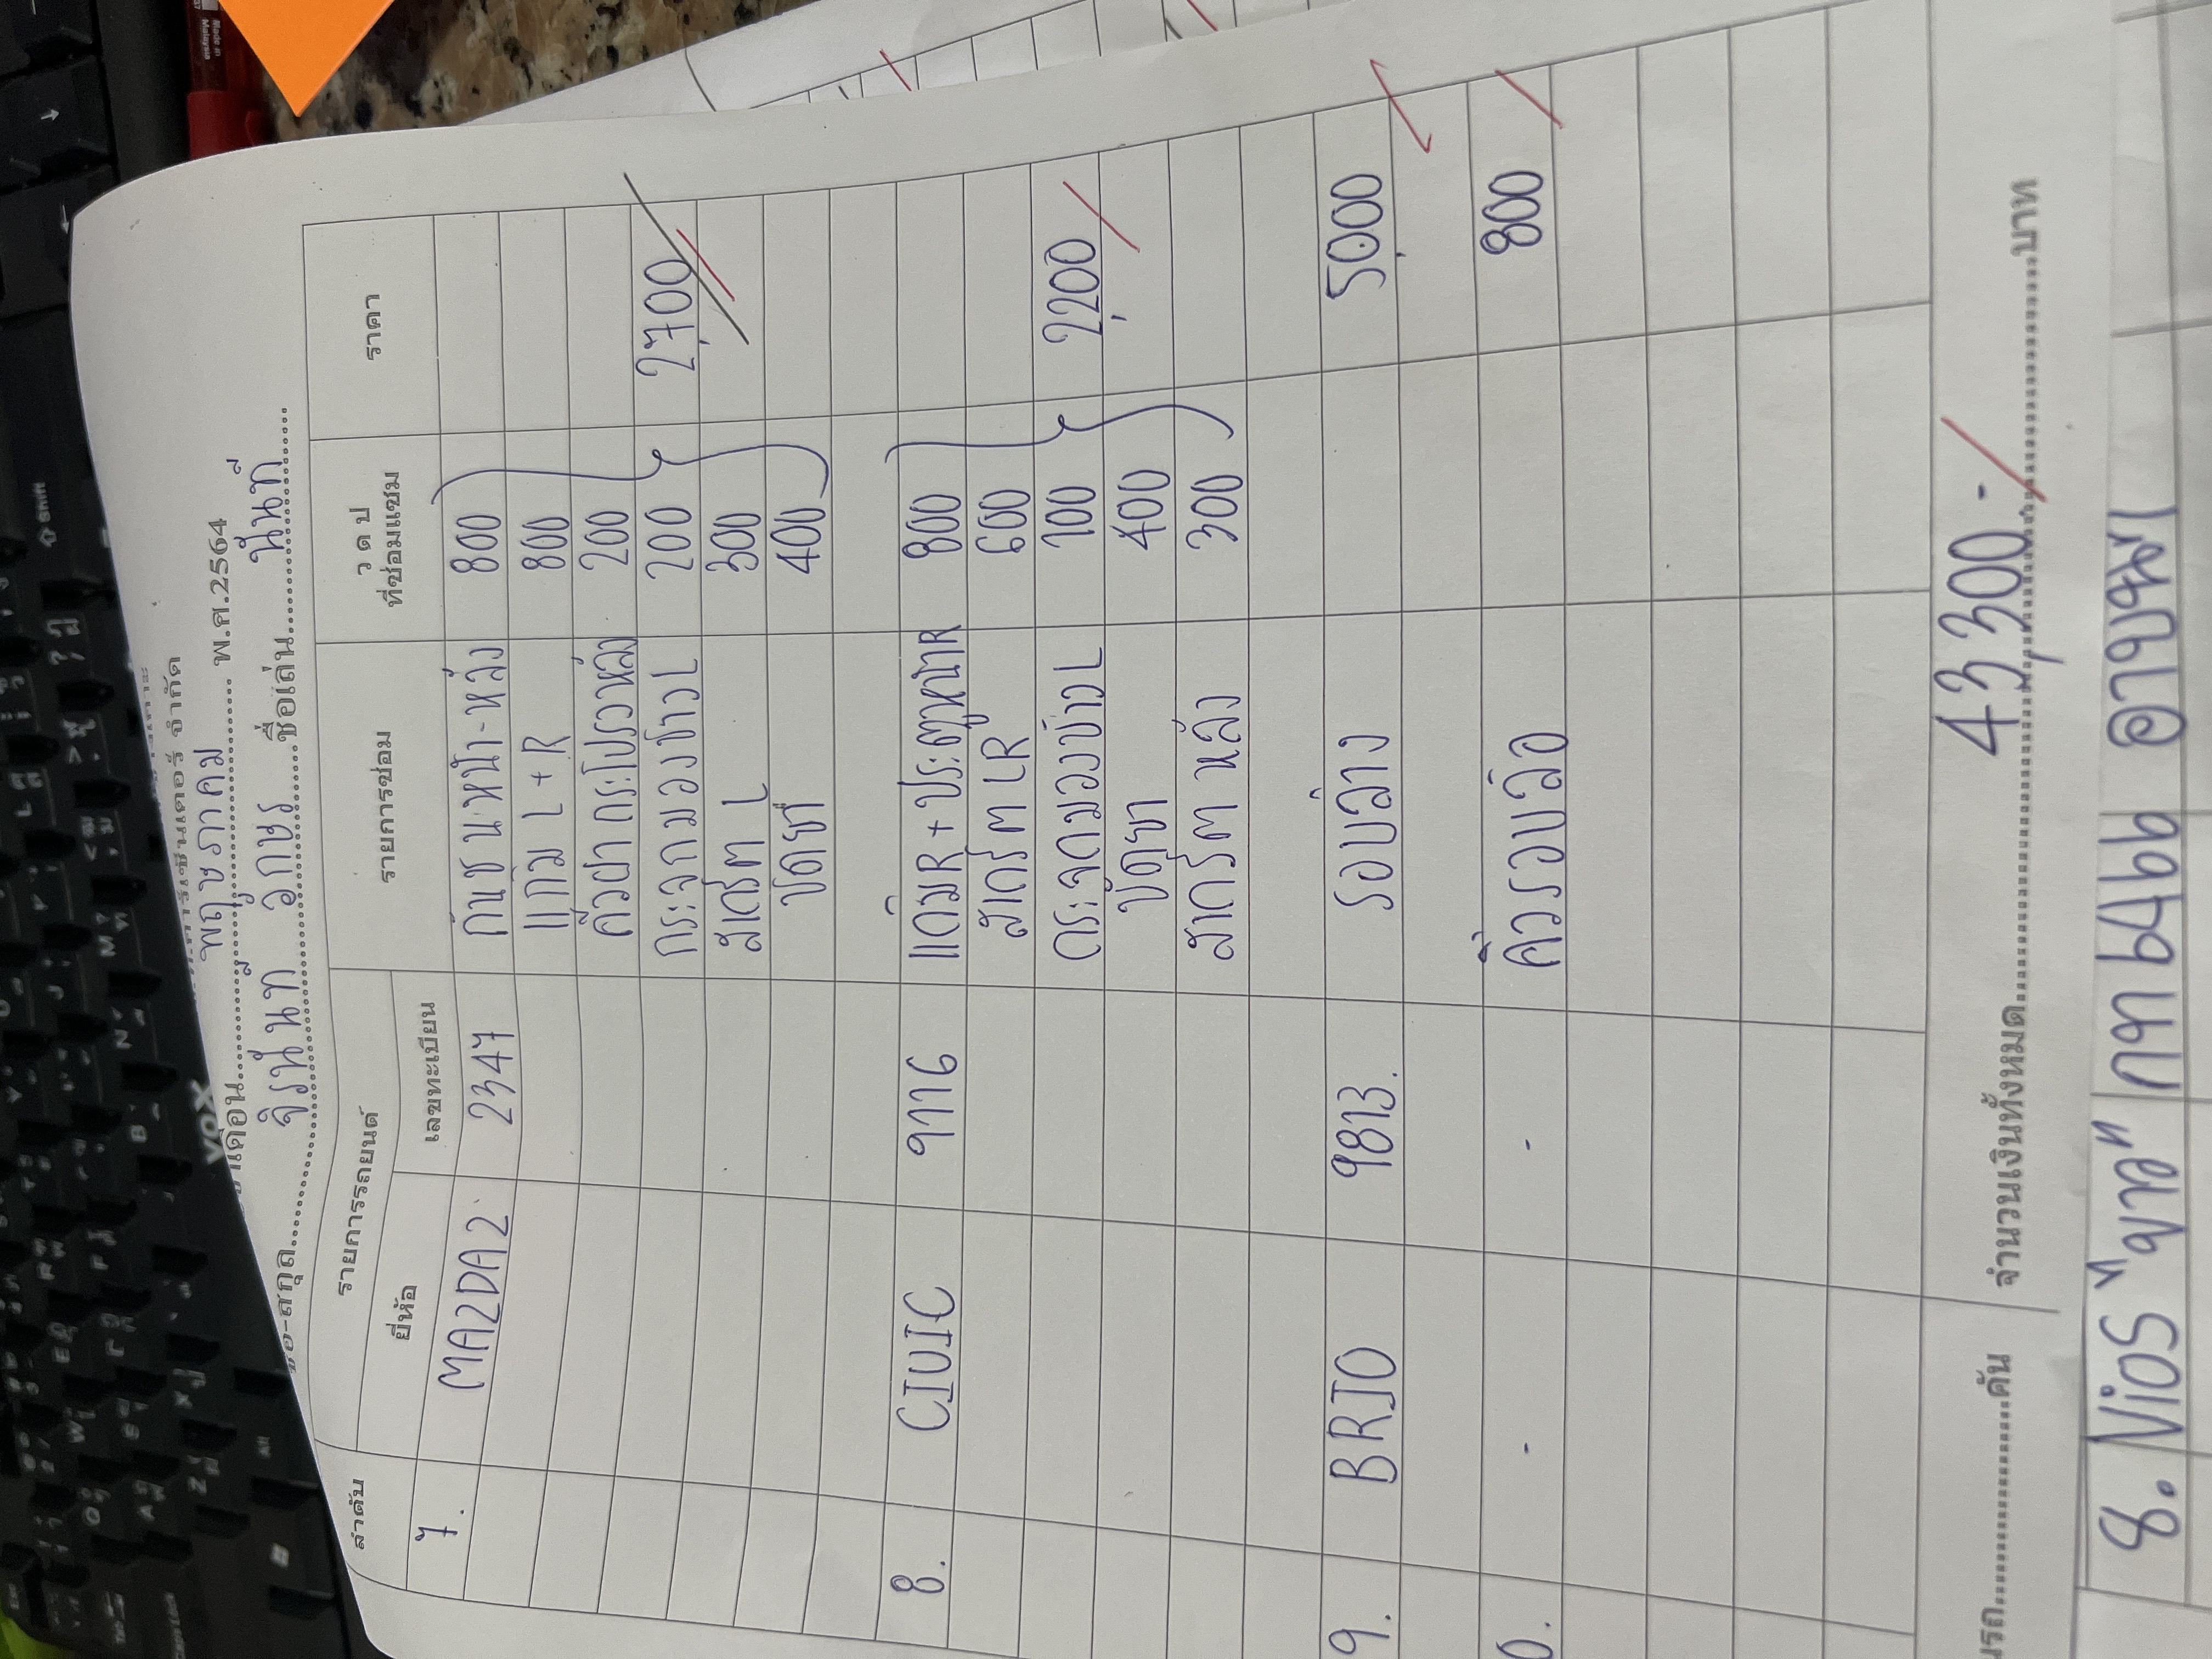 พฤษภาคม พ.ศ.2564
จิรนันท อักษร ชื่อเล่น นันท์
ลำดับ รายการรถยนต์ รายการซ่อม ว ด ป ที่ซ่อมแซม ราคา
ยี่ห้อ เลขทะเบียน
7. MAZDA2 2347 กันชนหน้า-หลัง 800
แก้ม L+R 800
คิ้วฝากระโปรงหลัง 200
กระจกมองข้าง L 200 2,700
สเกิร์ต L 300
ขัดยา 400
8. CIVIC 9116 แก้มR+ประตูหน้าR 800
สเกิร์ต LR 600
กระจกมองข้าง L 100 2,200
ขัดยา 400
สเกิร์ต หลัง 300
9. BRIO 9813. รอบล่าง 5,000
0. - - คิ้วรอบล้อ 800
จำนวนเงินทั้งหมด 43,300.- บาท
คัน
8. Vios "ขาด" กท